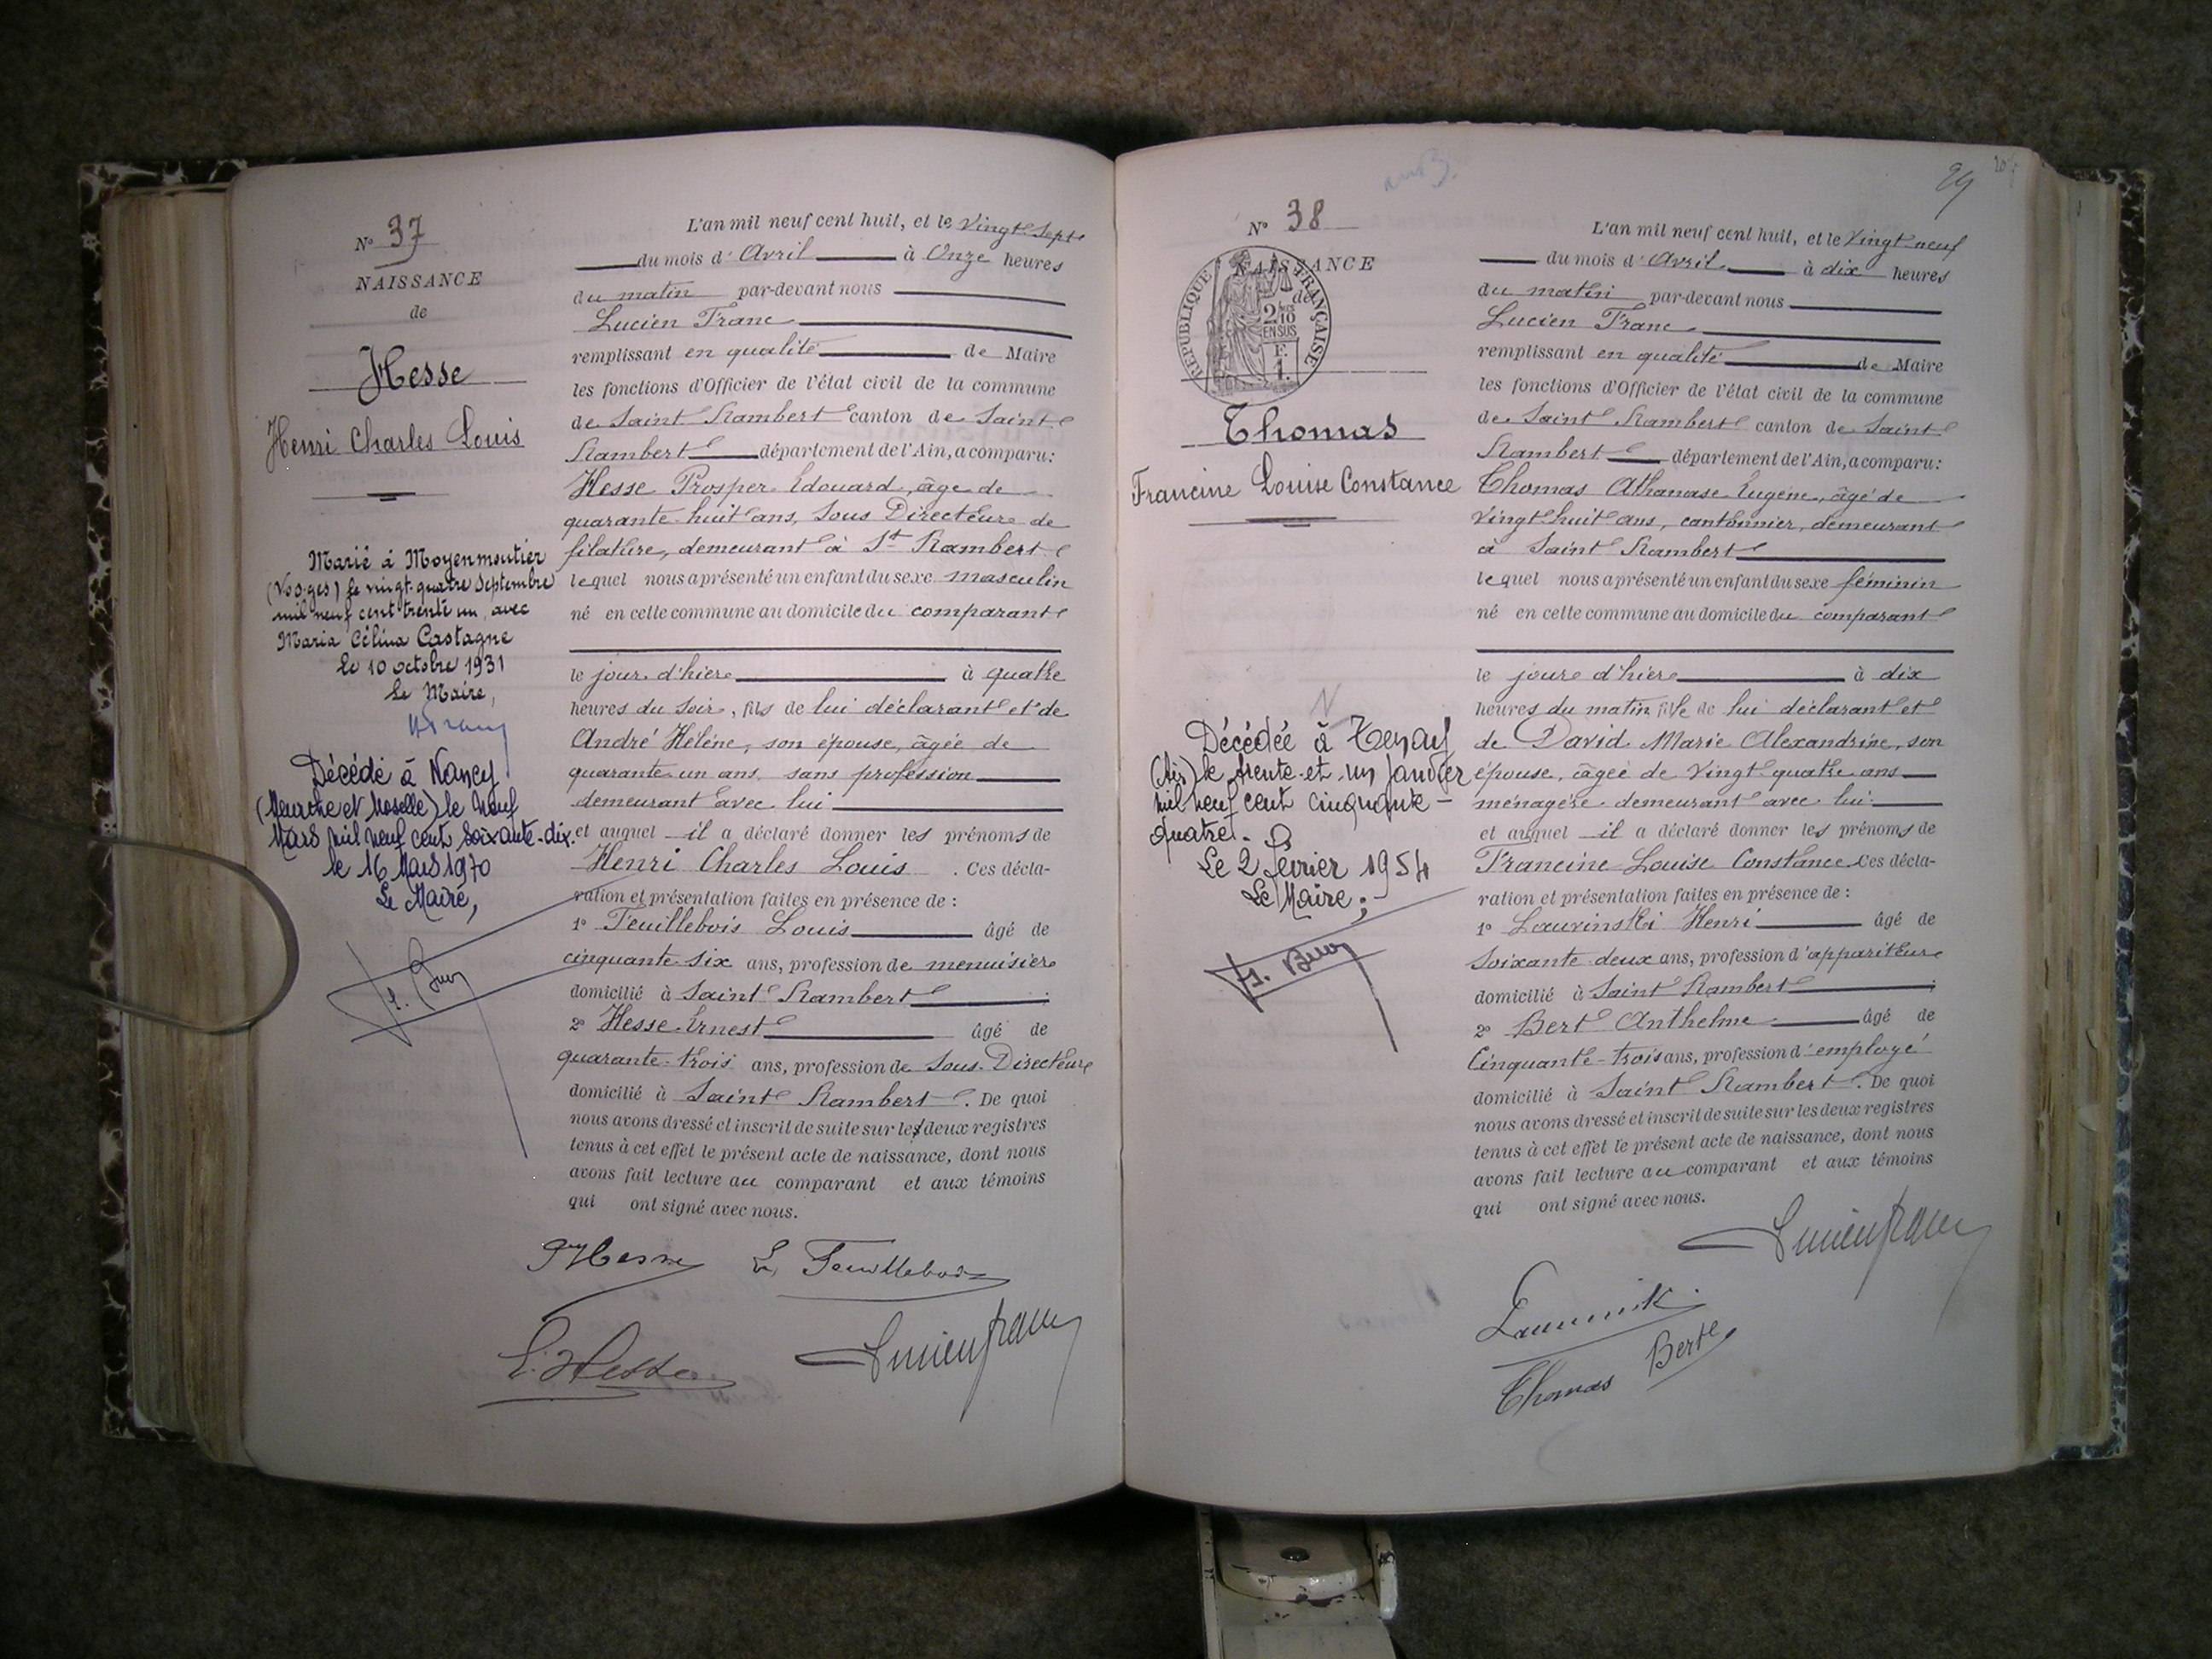 N° 37
NAISSANCE
de
Hesse
Henri Charles Louis
Marié à Moyenmoutier
(Vosges) le vingt-quatre Septembre
mil neuf cent trente un, avec
Maria Célina Castagne
Le 10 octobre 1931
Le Maire,
Décédé à Nancy
(Meurthe et Moselle) le neuf
Mars mil neuf cent soixante-dix.
le 16 Mars 1970
Le Maire,
L'an mil neuf cent huit, et le Vingt-Sept
du mois d'Avril à Onze heures
du matin par-devant nous
Lucien Franc
remplissant en qualité de Maire
les fonctions d'Officier de l'état civil de la commune
de Saint Rambert canton de Saint
Rambert département de l'Ain, a comparu:
Hesse Prosper Edouard, âgé de
quarante-huit ans, Sous Directeur de
filature, demeurant à St Rambert
lequel nous a présenté un enfant du sexe masculin
né en cette commune au domicile du comparant
le jour d'hier à quatre
heures du soir, fils de lui déclarant et de
André Hélène, son épouse, âgée de
quarante un ans, sans profession
demeurant avec lui
et auquel il a déclaré donner les prénoms de
Henri Charles Louis. Ces décla-
ration et présentation faites en présence de :
1° Feuillebois Louis âgé de
cinquante-six ans, profession de menuisier
domicilié à Saint Rambert ;
2° Hesse Ernest âgé de
quarante-trois ans, profession de Sous-Directeur
domicilié à Saint Rambert. De quoi
nous avons dressé et inscrit de suite sur les deux registres
tenus à cet effet le présent acte de naissance, dont nous
avons fait lecture au comparant et aux témoins
qui ont signé avec nous.
PHesse L. Feuillebois
E. Hesse Lucien Franc
29
N° 38
NAISSANCE
de
RÉPUBLIQUE FRANÇAISE
2/10
EN SUS
F.
1.
Thomas
Francine Louise Constance
Décédée à Tenay
(Ain) le trente-et-un Janvier
mil neuf cent cinquante-
quatre.
Le 2 février 1954
Le Maire :
L'an mil neuf cent huit, et le Vingt-neuf
du mois d'Avril à dix heures
du matin par-devant nous
Lucien Franc
remplissant en qualité de Maire
les fonctions d'Officier de l'état civil de la commune
de Saint Rambert canton de Saint
Rambert département de l'Ain, a comparu:
Thomas Athanase Eugène, âgé de
Vingt huit ans, cantonnier, demeurant
à Saint Rambert
lequel nous a présenté un enfant du sexe féminin
né en cette commune au domicile du comparant
le jour d'hier à dix
heures du matin fille de lui déclarant et
de David Marie Alexandrine, son
épouse, âgée de Vingt quatre ans
ménagère demeurant avec lui
et auquel il a déclaré donner les prénoms de
Francine Louise Constance. Ces décla-
ration et présentation faites en présence de :
1° Lauvinski Henri âgé de
Soixante-deux ans, profession d'appariteur
domicilié à Saint Rambert ;
2° Bert Anthelme âgé de
Cinquante-trois ans, profession d'employé
domicilié à Saint Rambert. De quoi
nous avons dressé et inscrit de suite sur les deux registres
tenus à cet effet le présent acte de naissance, dont nous
avons fait lecture au comparant et aux témoins
qui ont signé avec nous.
Lucien Franc
Thomas Bert